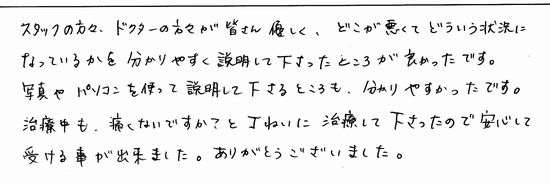 スタッフの方々、ドクターの方々が皆さん優しく、どこが悪くてどういう状況に
なっているかを分かりやすく説明して下さったところが良かったです。
写真やパソコンを使って説明して下さるところも、分かりやすかったです。
治療中も、痛くないですか?と丁ねいに治療して下さったので安心して
受ける事が出来ました。ありがとうございました。